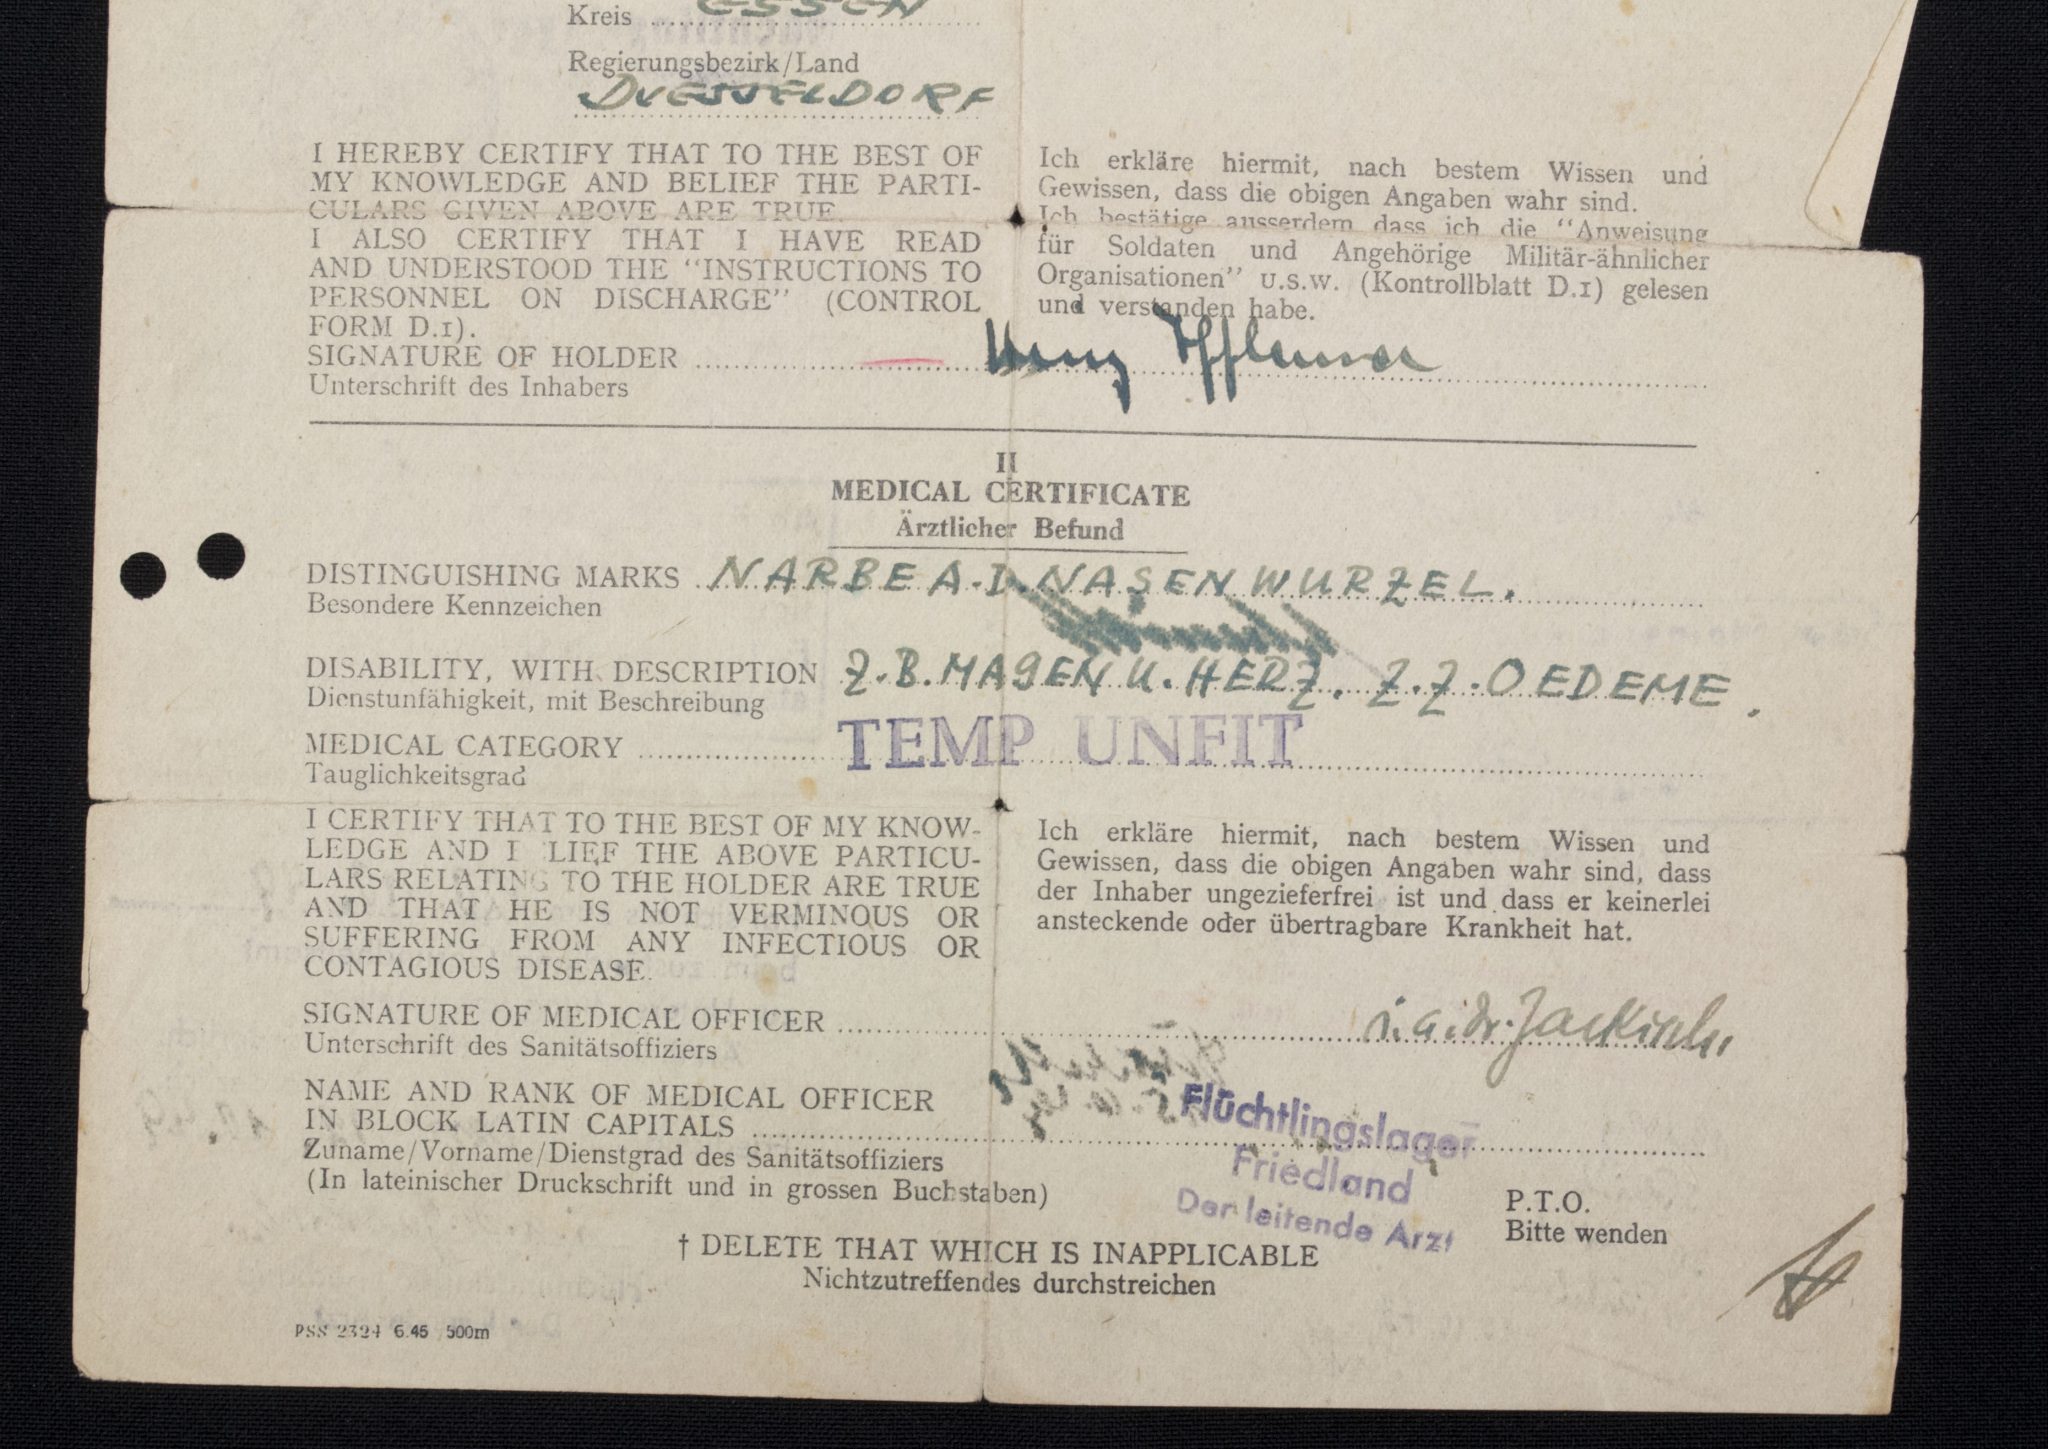 Kreis ESSEN
Regierungsbezirk/Land
DUESSELDORF
I HEREBY CERTIFY THAT TO THE BEST OF
MY KNOWLEDGE AND BELIEF THE PARTI-
CULARS GIVEN ABOVE ARE TRUE.
I ALSO CERTIFY THAT I HAVE READ
AND UNDERSTOOD THE "INSTRUCTIONS TO
PERSONNEL ON DISCHARGE" (CONTROL
FORM D.1).
Ich erkläre hiermit, nach bestem Wissen und
Gewissen, dass die obigen Angaben wahr sind.
Ich bestätige ausserdem dass ich die "Anweisung
für Soldaten und Angehörige Militär-ähnlicher
Organisationen" U.S.W. (Kontrollblatt D.1) gelesen
und verstanden habe.
SIGNATURE OF HOLDER
Unterschrift des Inhabers
II
MEDICAL CERTIFICATE
Ärztlicher Befund
DISTINGUISHING MARKS NARBE A.D. NASENWURZEL.
Besondere Kennzeichen
DISABILITY, WITH DESCRIPTION Z.B. MAGEN U. HERZ. Z.Z. OEDEME.
Dienstunfähigkeit, mit Beschreibung
MEDICAL CATEGORY TEMP UNFIT
Tauglichkeitsgrad
I CERTIFY THAT TO THE BEST OF MY KNOW-
LEDGE AND B LIEF THE ABOVE PARTICU-
LARS RELATING TO THE HOLDER ARE TRUE
AND THAT HE IS NOT VERMINOUS OR
SUFFERING FROM ANY INFECTIOUS OR
CONTAGIOUS DISEASE.
Ich erkläre hiermit, nach bestem Wissen und
Gewissen, dass die obigen Angaben wahr sind, dass
der Inhaber ungezieferfrei ist und dass er keinerlei
ansteckende oder übertragbare Krankheit hat.
SIGNATURE OF MEDICAL OFFICER i.a. Dr.
Unterschrift des Sanitätsoffiziers
NAME AND RANK OF MEDICAL OFFICER
IN BLOCK LATIN CAPITALS
Zuname/Vorname/Dienstgrad des Sanitätsoffiziers
(In lateinischer Druckschrift und in grossen Buchstaben)
Flüchtlingslager
Friedland
Der leitende Arzt
P.T.O.
Bitte wenden
† DELETE THAT WHICH IS INAPPLICABLE
Nichtzutreffendes durchstreichen
PSS 2324 6.45 500m